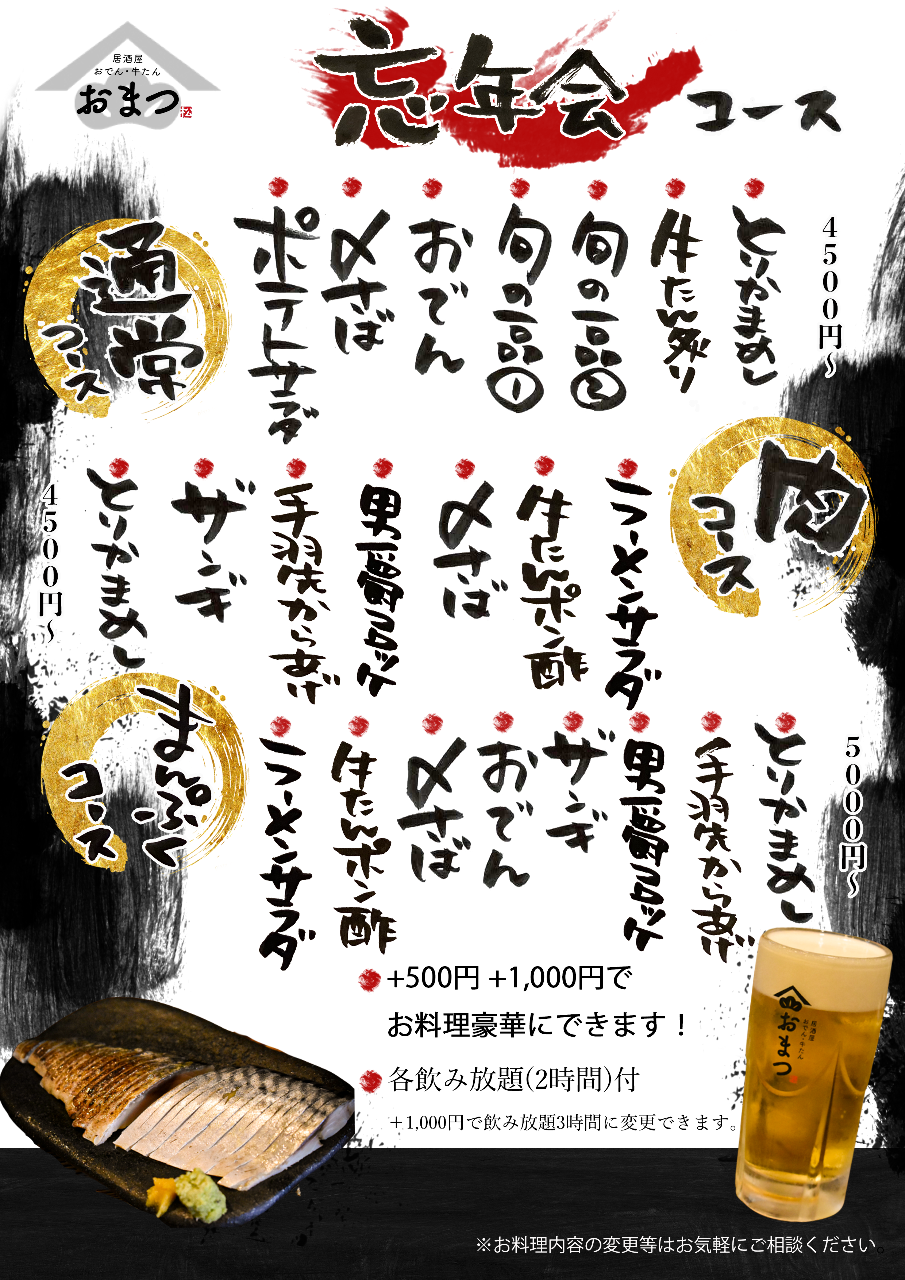 居酒屋
おでん・牛たん
おまつ
松
忘年会 コース
通常
コース
4500円～
とりかまめし
牛たん炙り
旬の一品②
旬の一品①
おでん
〆さば
ポテトサラダ
肉
コース
ラーメンサラダ
牛たんポン酢
〆さば
男爵コロッケ
手羽先からあげ
ザンギ
とりかまめし
4500円～
まんぷく
コース
5000円～
とりかまめし
手羽先からあげ
男爵コロッケ
ザンギ
おでん
〆さば
牛たんポン酢
ラーメンサラダ
+500円 +1,000円で
お料理豪華にできます！
各飲み放題(2時間)付
＋1,000円で飲み放題3時間に変更できます。
居酒屋
おでん・牛たん
おまつ
※お料理内容の変更等はお気軽にご相談ください。